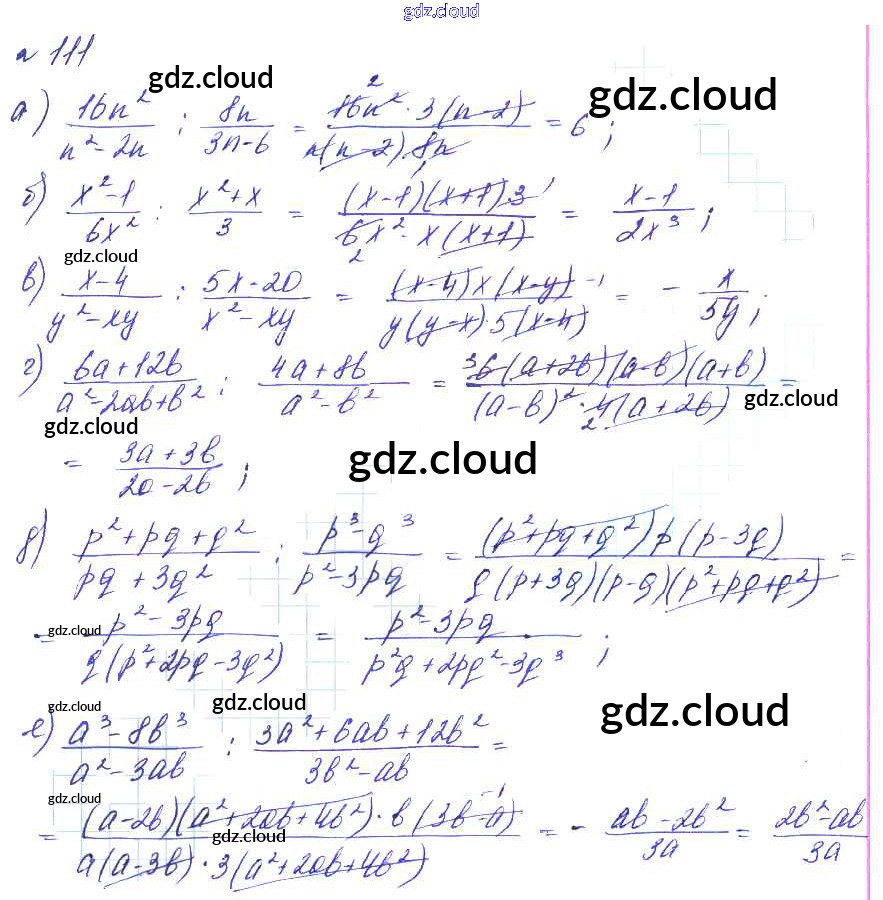 gdz.cloud
№ 111
gdz.cloud
gdz.cloud
а) 16n²/(n²-2n) : 8n/(3n-6) = (16n² · 3(n-2))/(n(n-2) · 8n) = 6;
б) (x²-1)/(6x²) : (x²+x)/3 = ((x-1)(x+1) 3)/(6x² · x(x+1)) = (x-1)/(2x³);
gdz.cloud
в) (x-4)/(y²-xy) : (5x-20)/(x²-xy) = ((x-4) x (x-y))/(y(y-x) · 5(x-4)) = - x/(5y);
г) (6a+12b)/(a²-2ab+b²) : (4a+8b)/(a²-b²) = (6(a+2b)(a-b)(a+b))/((a-b)² · 4(a+2b)) =
gdz.cloud
gdz.cloud
= (3a+3b)/(2a-2b);
gdz.cloud
д) (p²+pq+q²)/(pq+3q²) : (p³-q³)/(p²-3pq) = ((p²+pq+q²) p(p-3q))/(q(p+3q)(p-q)(p²+pq+q²)) =
gdz.cloud
= (p²-3pq)/(q(p²+2pq-3q²)) = (p²-3pq)/(p²q+2pq²-3q³);
gdz.cloud
gdz.cloud
gdz.cloud
е) (a³-8b³)/(a²-3ab) : (3a²+6ab+12b²)/(3b²-ab) =
gdz.cloud
= ((a-2b)(a²+2ab+4b²) · b(3b-a))/(a(a-3b) · 3(a²+2ab+4b²)) = - (ab-2b²)/(3a) = (2b²-ab)/(3a)
gdz.cloud